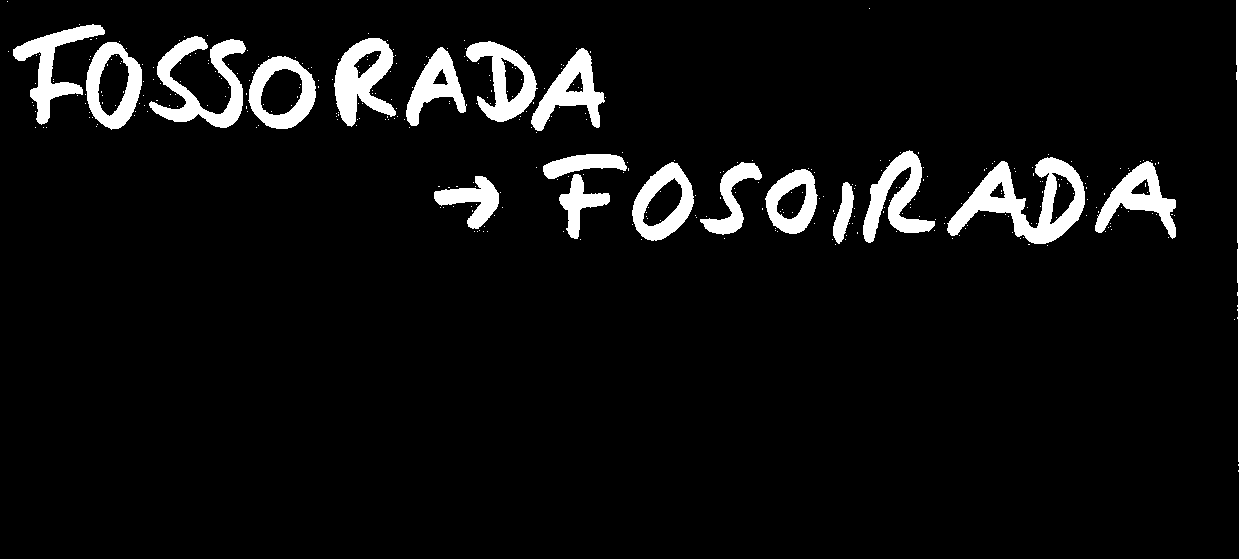 FOSSORADA
→ FOSOIRADA